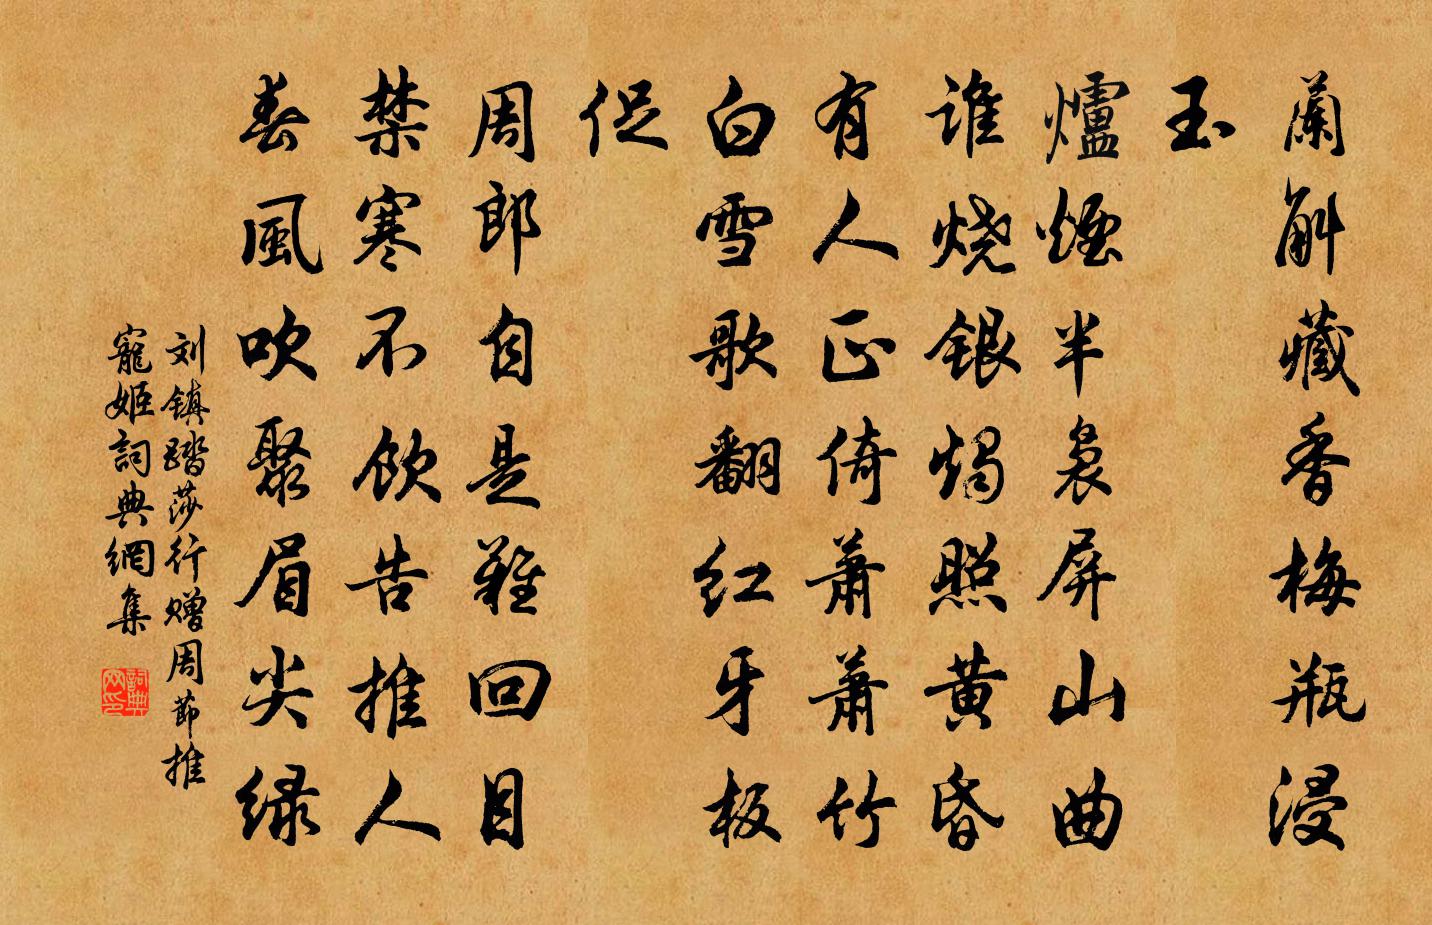 蘭斛藏香梅瓶浸
玉
爐煙半裊屏山曲
谁烧銀燭照黄昏
有人正倚萧萧竹
白雪歌翻红牙板
促
周郎自是難回目
禁寒不飲告推人
春風吹聚眉尖绿
刘镇踏莎行赠周節推
寵姬詞典網集
詞典網印